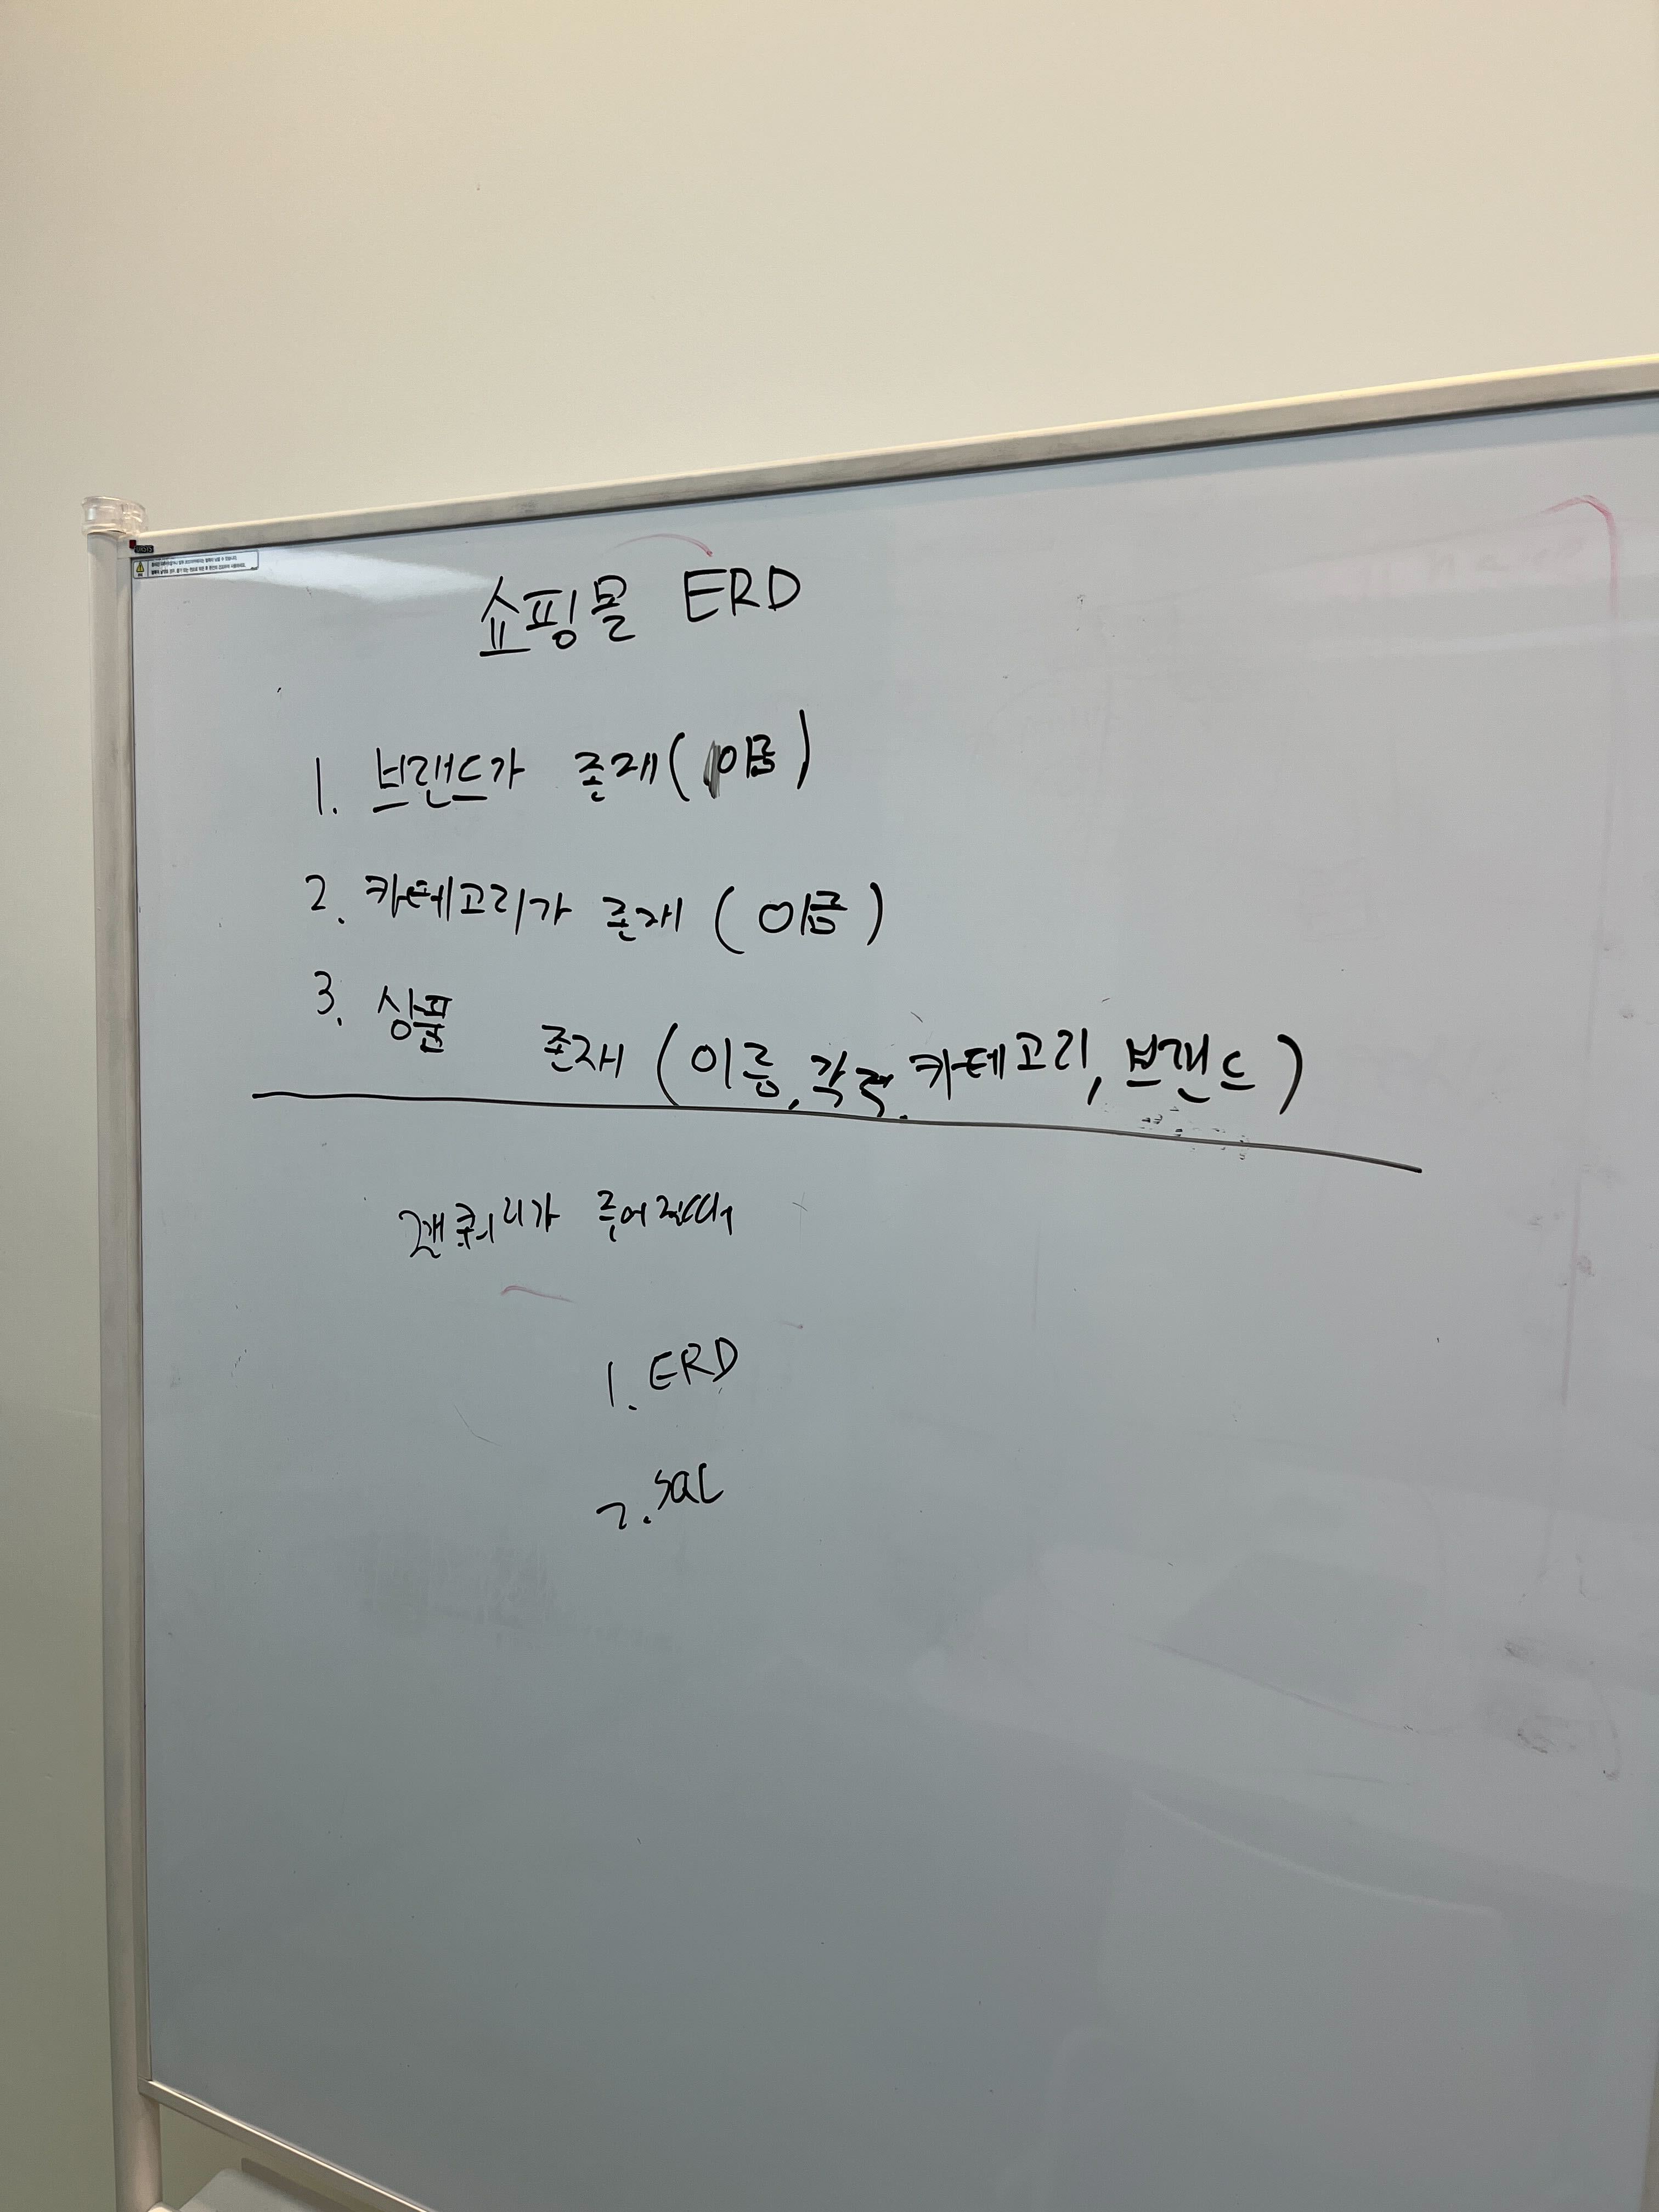 쇼핑몰 ERD
1. 브랜드가 존재(이름)
2. 카테고리가 존재 (이름)
3. 상품 존재 (이름, 카테고리, 브랜드)
쿼리가
1. ERD
2. SQL